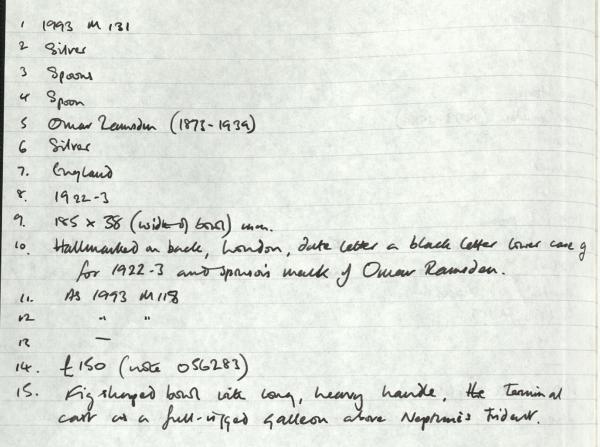 1 1993 M 131
2 Silver
3 Spoons
4 Spoon
5 Omar Ramsden (1873-1939)
6 Silver
7. England
8. 1922-3
9. 185 x 38 (width of bowl) mm.
10. Hallmarked on back, London, date letter a black letter lower case g
for 1922-3 and sponsor's mark of Omar Ramsden.
11. As 1993 M118
12 " "
13 —
14. £150 (note 056283)
15. Fig shaped bowl with long, heavy handle, the terminal
cast as a full-rigged galleon above Neptune's Trident.